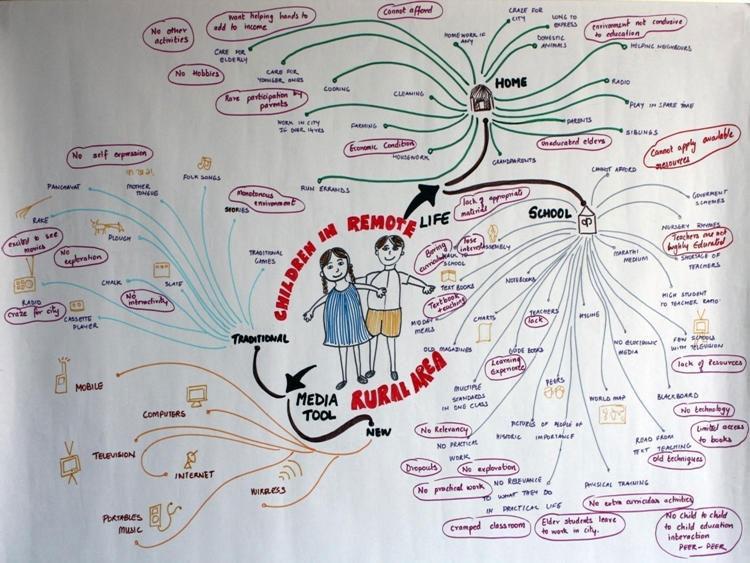 No other
activities
Want helping hands to
add to income
Cannot afford
CRAZE FOR
CITY
LONG TO
EXPRESS
environment not conducive
to education
HOMEWORK IF
ANY
DOMESTIC
ANIMALS
HELPING NEIGHBOURS
CARE FOR
ELDERLY
No Hobbies
CARE FOR
YOUNGER ONES
COOKING
CLEANING
HOME
RADIO
PLAY IN SPARE TIME
Rare participation by
parents
WORK IN CITY
IF OVER 14 YRS
FARMING
PARENTS
SIBLINGS
Economic Condition
HOUSEWORK
Uneducated elders
GRANDPARENTS
RUN ERRANDS
Cannot apply available
resources
No self expression
PANCHAYAT
MOTHER
TONGUE
FOLK SONGS
Monotonous
environment
STORIES
RAKE
PLOUGH
excited to see
movies
No
exploration
TRADITIONAL
GAMES
CHALK
SLATE
No
interactivity
RADIO
Craze for city
CASSETTE
PLAYER
TRADITIONAL
CHILDREN IN REMOTE
RURAL AREA
LIFE
MEDIA
TOOL
NEW
MOBILE
COMPUTERS
TELEVISION
INTERNET
WIRELESS
PORTABLES
MUSIC
SCHOOL
CANNOT AFFORD
GOVERMENT
SCHEMES
NURSERY RHYMES
Teachers are not
highly Educated
SHORTAGE OF
TEACHERS
MARATHI
MEDIUM
HIGH STUDENT
TO TEACHER RATIO
FEW SCHOOLS
WITH TELEVISION
lack of Resources
NO ELECTRONIC
MEDIA
BLACKBOARD
No technology
Limited access
to books
READ FROM
TEXT TEACHING
Old techniques
WORLD MAP
PHYSICAL TRAINING
No extra curricular activities
No child to child
to child education
interaction
PEER-PEER
lack of appropriate
material
lose
interest
ASSEMBLY
Boring
SCHOOL
TEXT BOOKS
NOTEBOOKS
Textbook
teaching
MIDDAY
MEALS
CHARTS
TEACHERS
lack
OLD MAGAZINES
GUIDE BOOKS
Learning
Experience
PEERS
MULTIPLE
STANDARDS
IN ONE CLASS
PICTURES OF PEOPLE OF
HISTORIC IMPORTANCE
No Relevancy
NO PRACTICAL
WORK
Dropouts
No exploration
No practical work
NO RELEVANCE
TO WHAT THEY DO
IN PRACTICAL LIFE
cramped classroom
Elder students leave
to work in city.